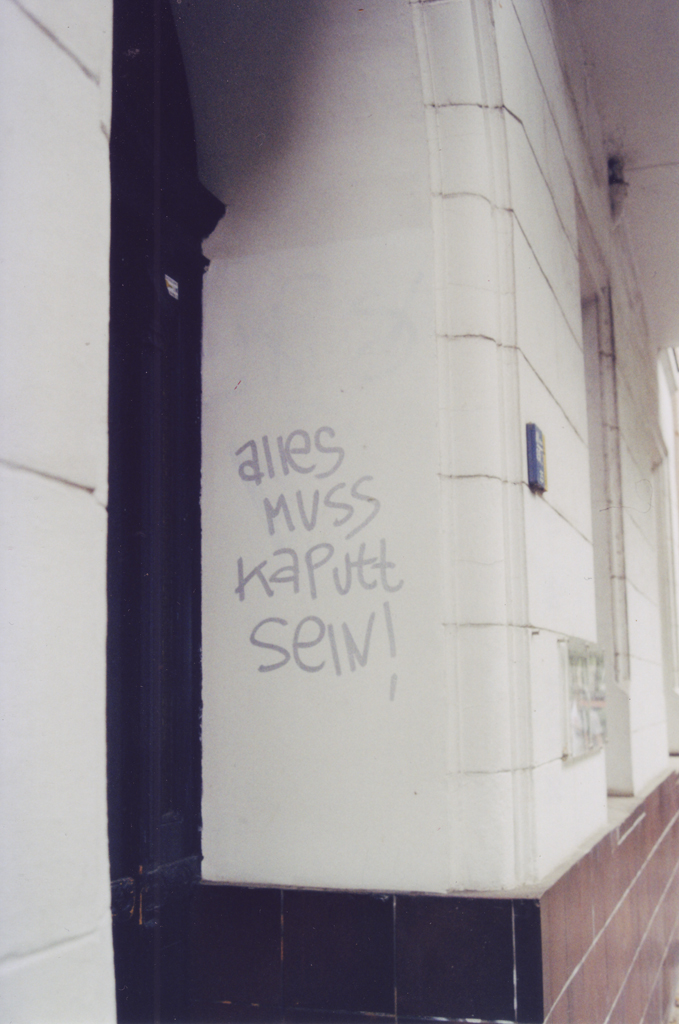 alles
muss
kaputt
sein!